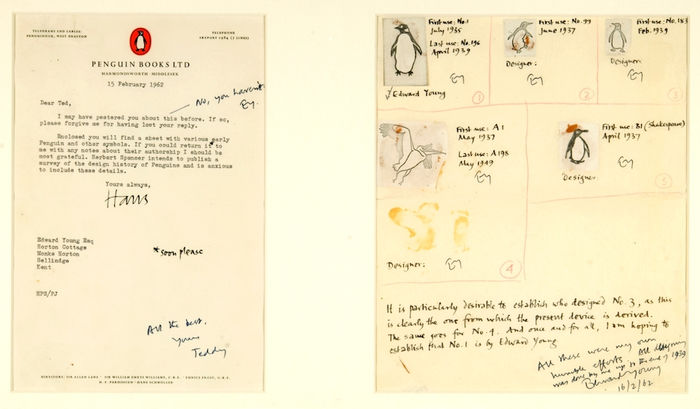 TELEGRAMS AND CABLES
PENGUINOOK, WEST DRAYTON
TELEPHONE
SKYPORT 1984 (7 LINES)
PENGUIN BOOKS LTD
HARMONDSWORTH · MIDDLESEX
15 February 1962
No, you haven't
EY.
Dear Ted,
I may have pestered you about this before. If so,
please forgive me for having lost your reply.
Enclosed you will find a sheet with various early
Penguin and other symbols. If you could return it to
me with any notes about their authorship I should be
most grateful. Herbert Spencer intends to publish a
survey of the design history of Penguins and is anxious
to include these details.
Yours always,
Hans
Edward Young Esq
Horton Cottage
Monks Horton
Sellindge
Kent
*soon please
HPS/PJ
All the best,
Yours
Teddy
DIRECTORS: SIR ALLEN LANE · SIR WILLIAM EMRYS WILLIAMS, C.B.E. · EUNICE FROST, O.B.E.
H. F. PAROISSIEN · HANS SCHMOLLER
First use: No. 1
July 1935
Last use: No. 196
April 1939
EY
√ Edward Young
1
First use: No. 99
June 1937
Designer:
EY
2
First use: No. 183
Feb. 1939
Designer:
EY
3
First use: A1
May 1937
Last use: A198
May 1949
EY
Designer:
EY
4
First use: B1 (Shakespeare)
April 1937
EY
Designer:
5
It is particularly desirable to establish who designed No. 3, as this
is clearly the one from which the present device is derived.
The same goes for No. 4. And once and for all, I am hoping to
establish that No. 1 is by Edward Young
All these were my own
humble efforts. All designing
was done by me up to end of 1939
Edward Young
16/2/62